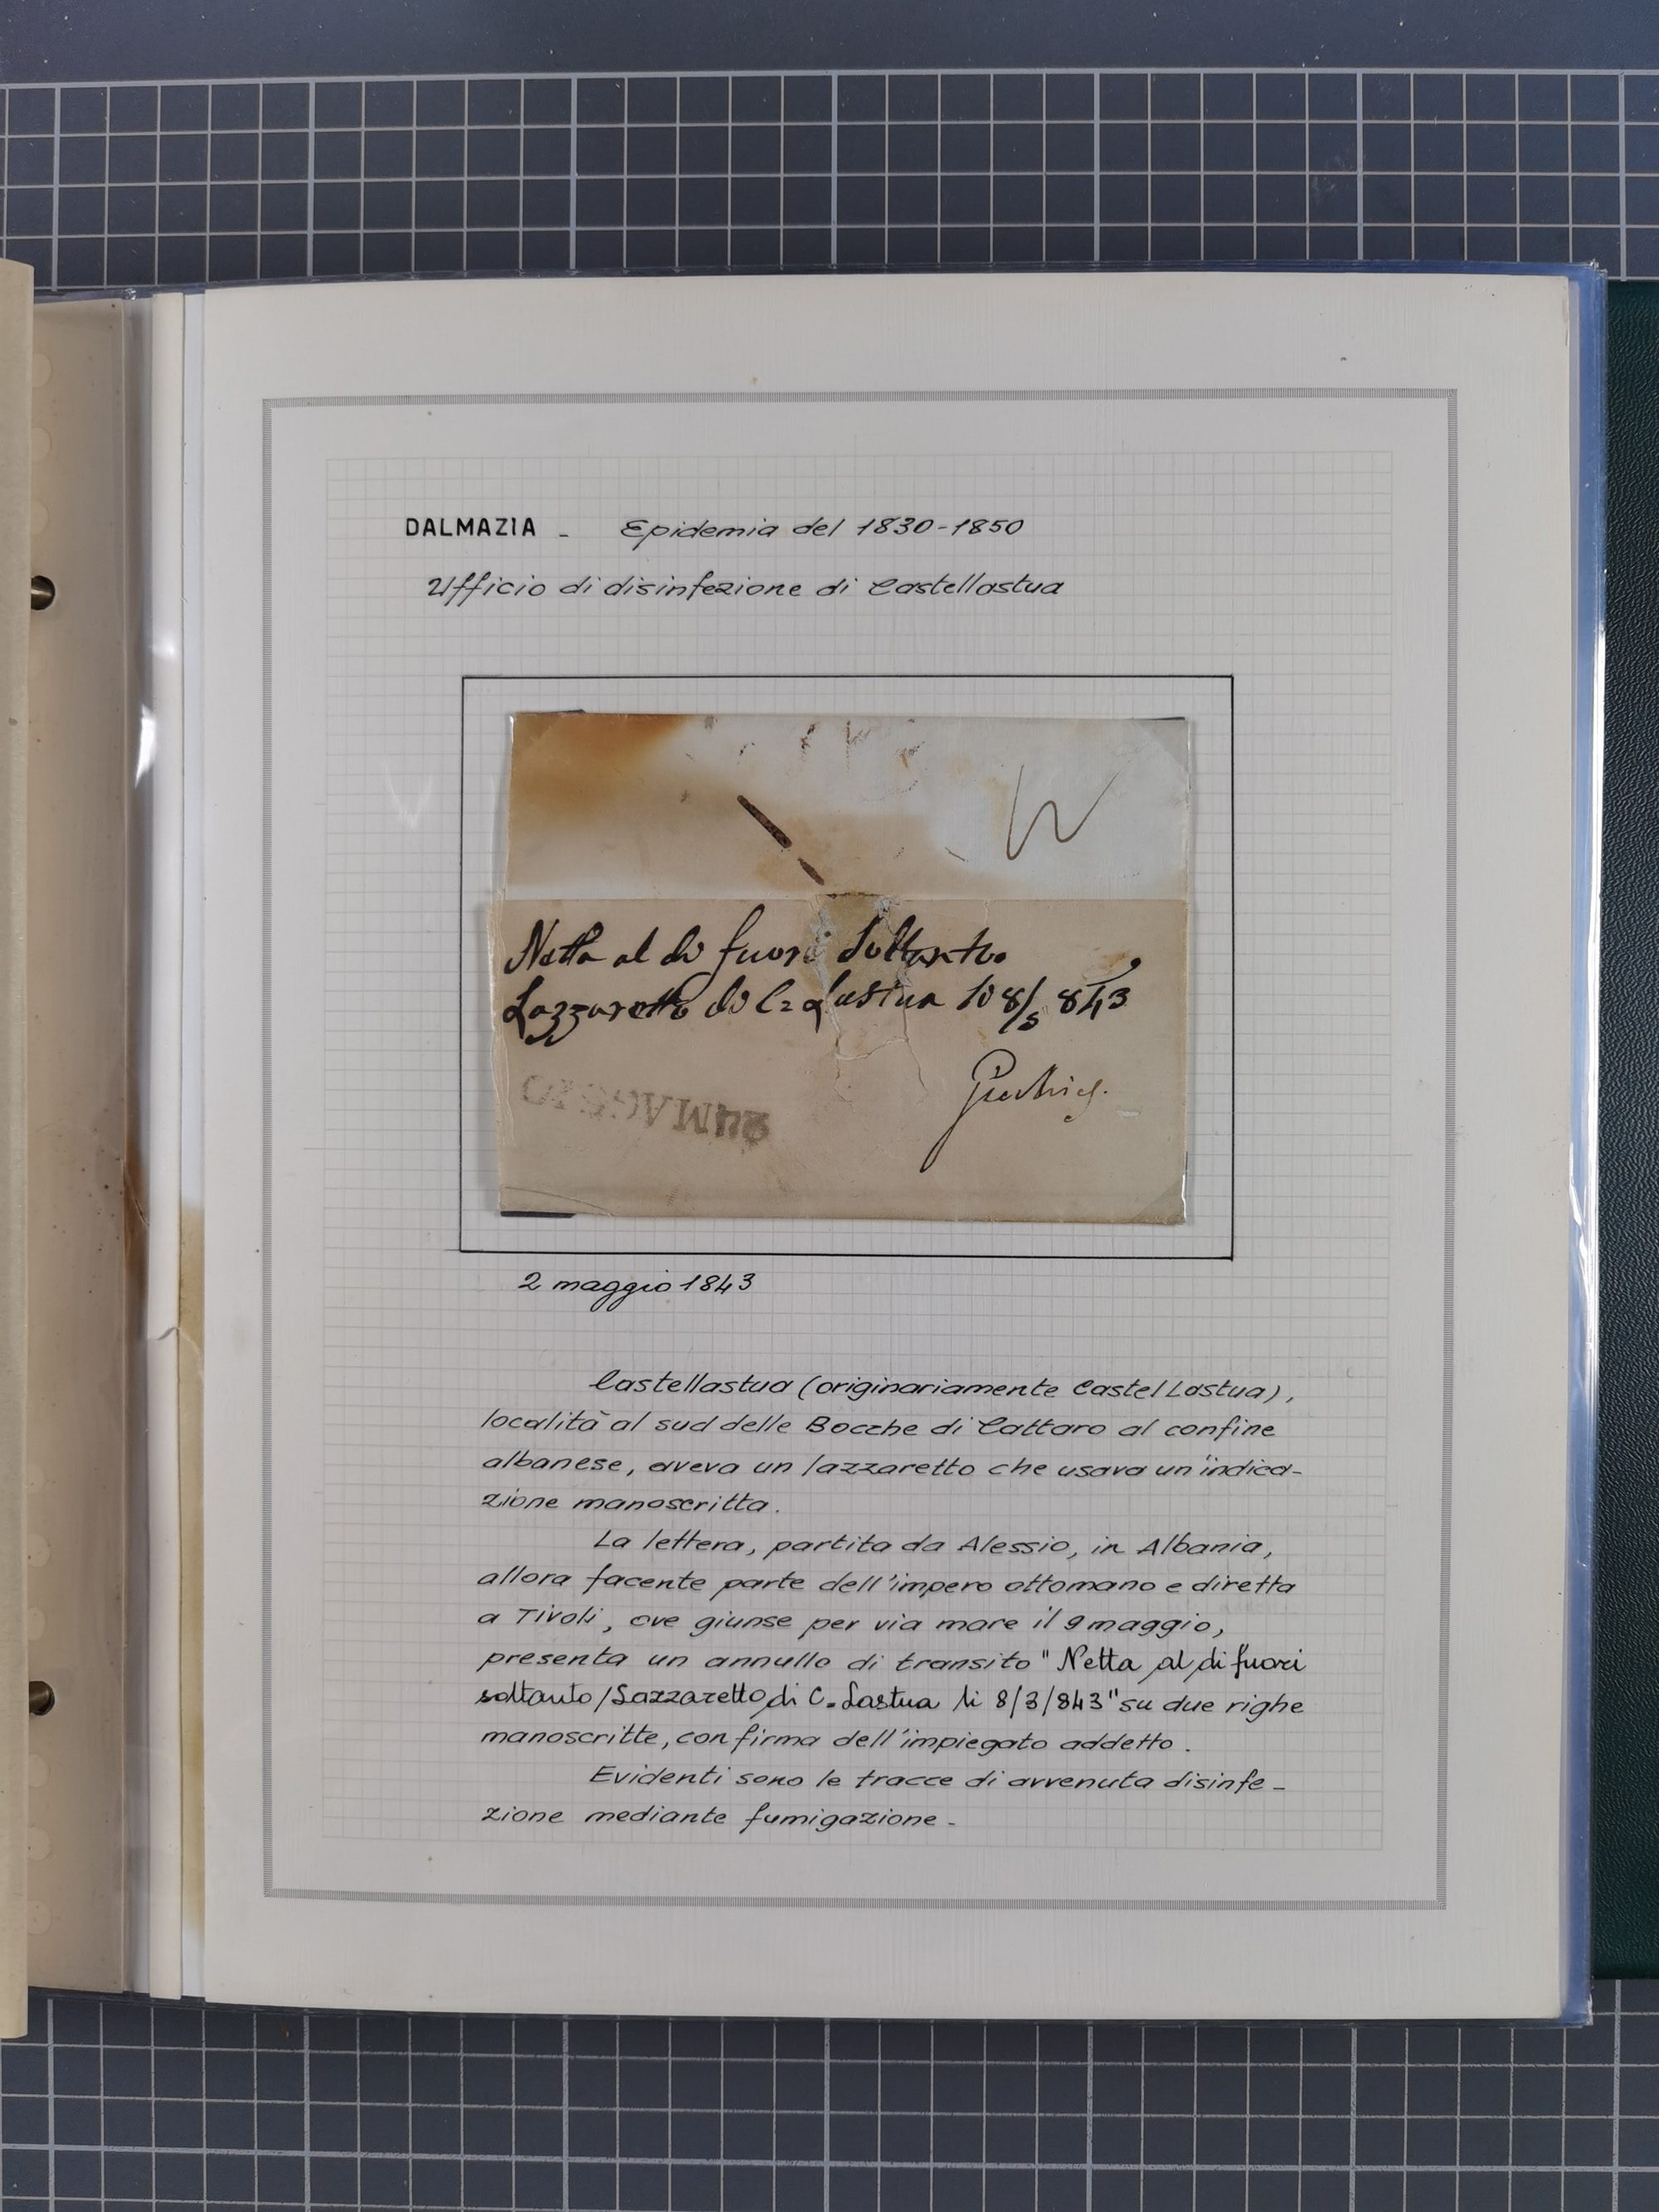 DALMAZIA - Epidemia del 1830-1850
Ufficio di disinfezione di Castellastua
Netta al di fuori Soltanto
Lazzaretto di C= Lastua li 8/5 843
24 MAGGIO
2 maggio 1843
Castellastua (originariamente Castel Lastua),
località al sud delle Bocche di Cattaro al confine
albanese, aveva un lazzaretto che usava un'indica-
zione manoscritta.
La lettera, partita da Alessio, in Albania,
allora facente parte dell'impero ottomano e diretta
a Tivoli, ove giunse per via mare il 9 maggio,
presenta un annullo di transito "Netta al di fuori
soltanto/Lazzaretto di C. Lastua li 8/3/843" su due righe
manoscritte, con firma dell'impiegato addetto.
Evidenti sono le tracce di avvenuta disinfe-
zione mediante fumigazione-